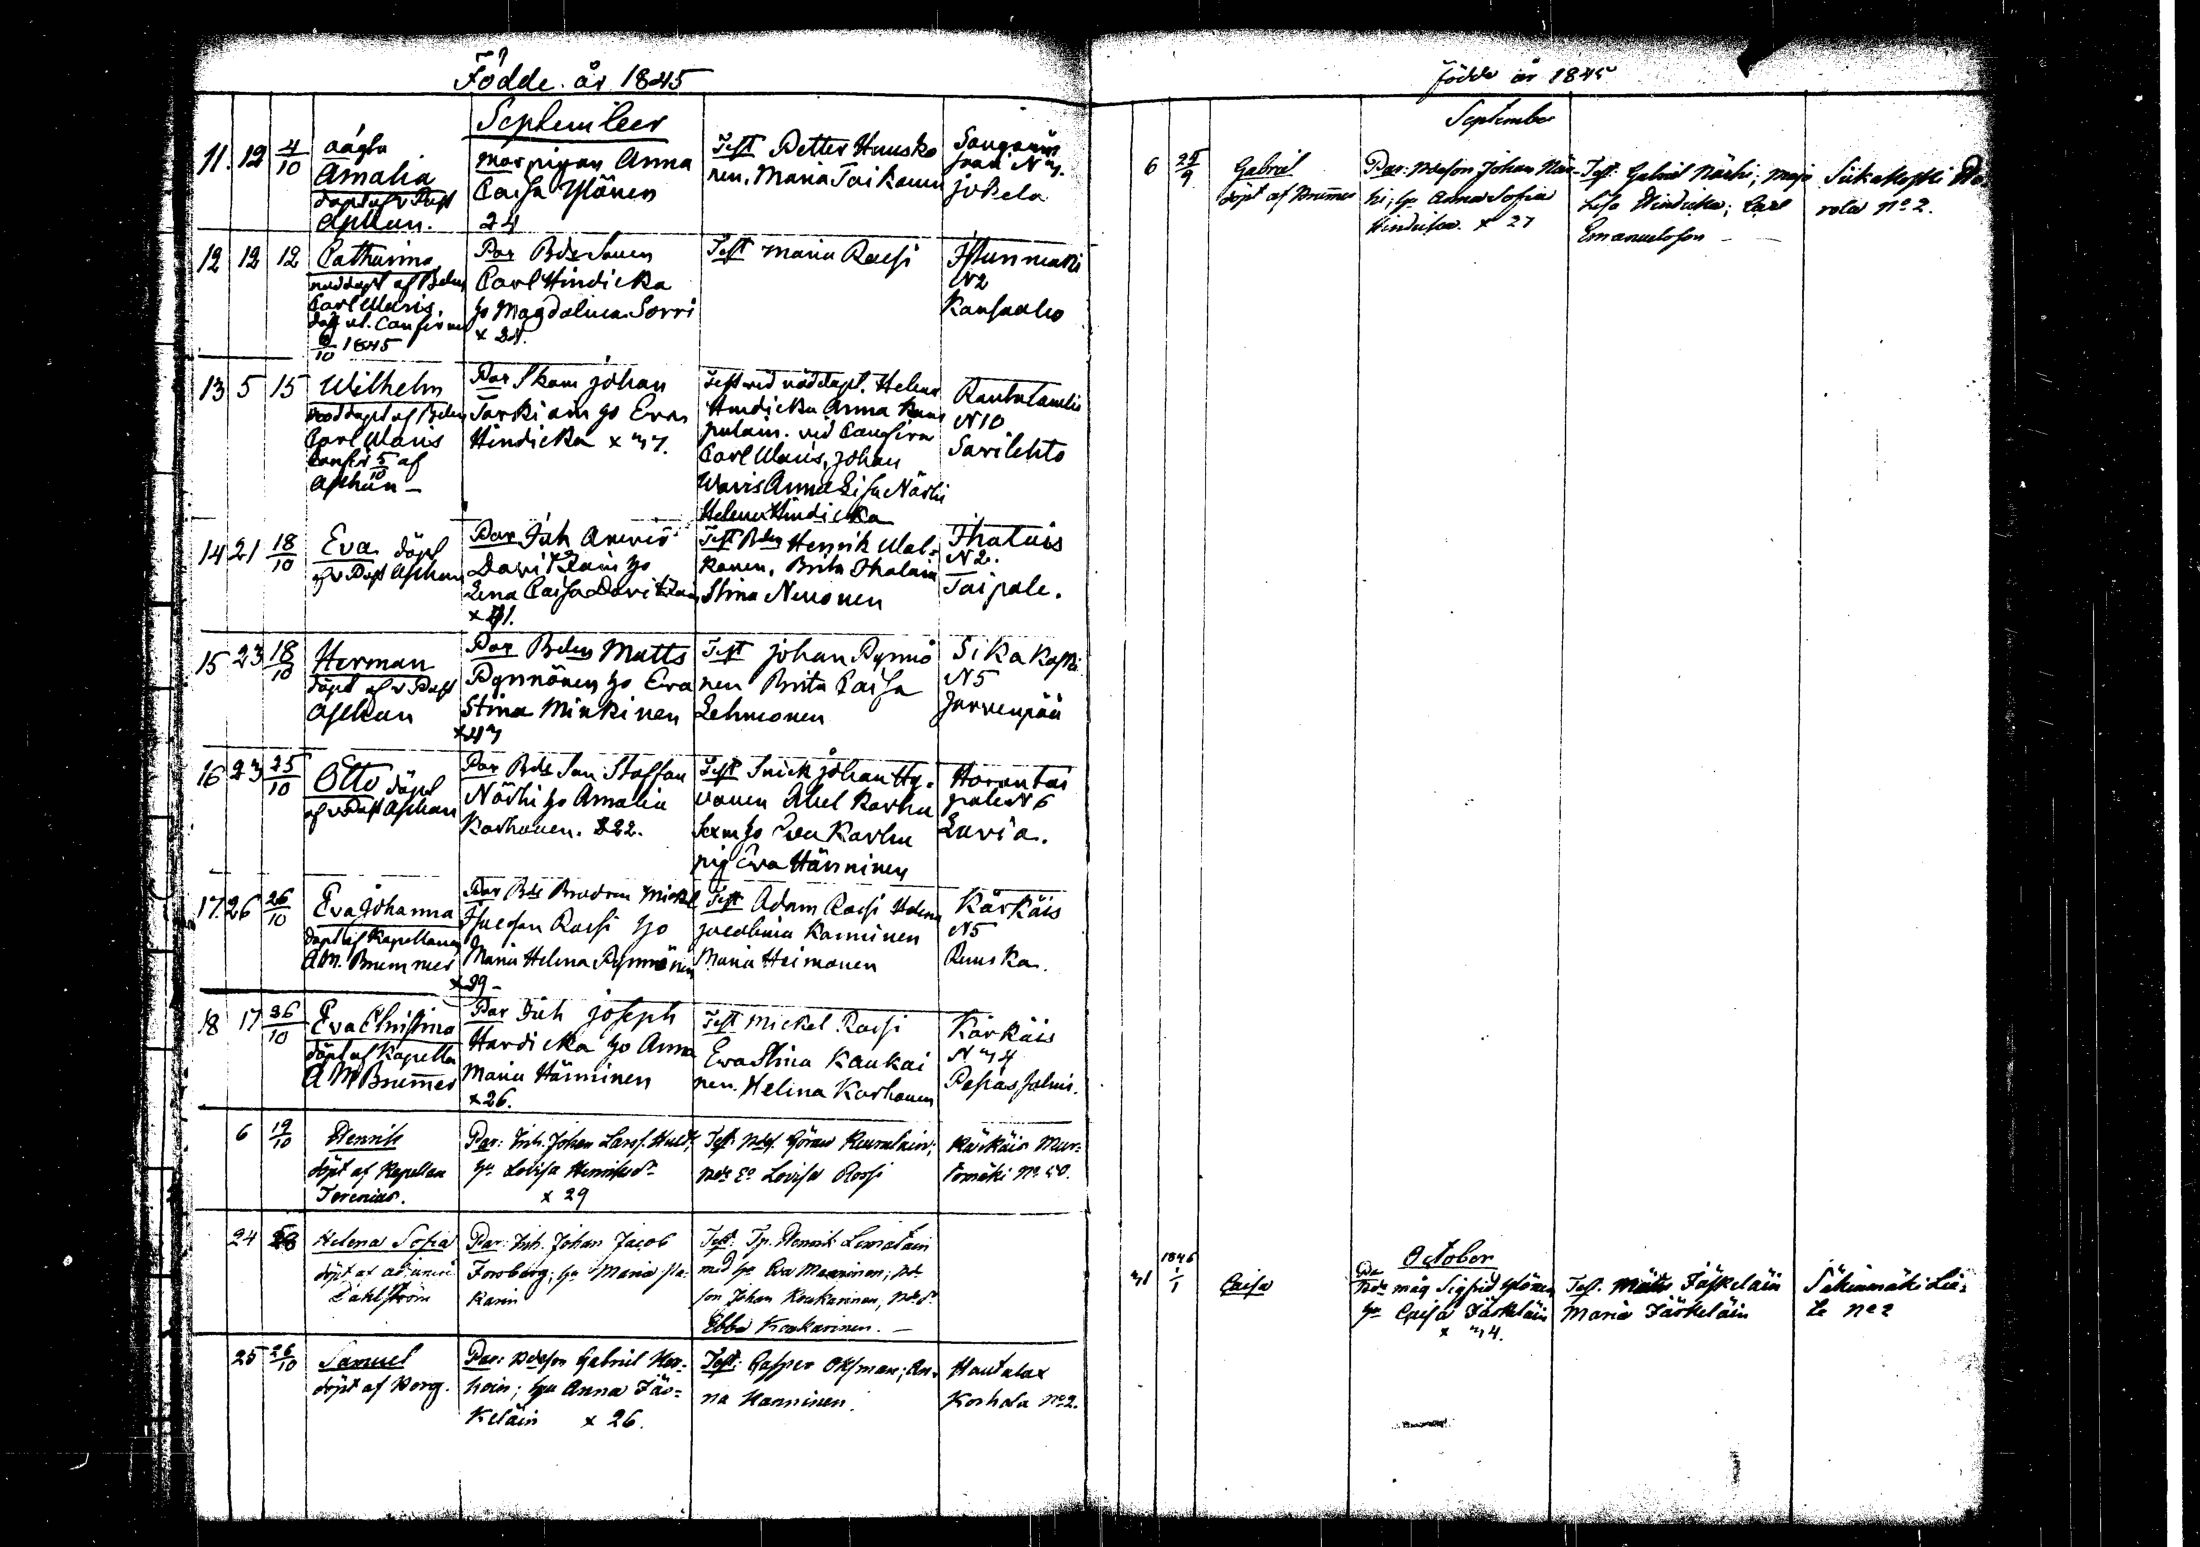 Födde år 1845
September
11. 12 4/10 oägta
Amalia
döpt af v Past
Aschan.
mor pigan Anna
Caisa Ylönen
24
Test Petter Huusko
nen, Maria Taikonen
jokela
12 12 12 Catharina
nöddöpt af Bdn
Carl Waris.
1845
Par Bdesonen
Carl Hindicka
ho Magdalena Sorri
x 24.
Test Maria Rassi
Istunmäki
N2
Kansaaho
13 5 15 Wilhelm
nöddöpt af Bdn
Carl Waris
Confir 5/10 af
Aschan –
Par Skom johan
Tarkiain ho Eva
Hindicka x 37.
Test vid nöddopt. Helena
Hindicka Anna
vid Confirm
Carl Waris, johan
Waris Anna Lisa Närhi
Helena Hindicka
Rautalambi
N10
Sarilehto
14 21 18/10 Eva döpt
af v Past Aschan
Par Inh
Davitzain ho
Lena Caisa Davitzain
x 41.
Test Bdn Henrik Wal-
konen, Brita Ihalain
Stina Nenonen
Ihalais
N2.
Taipale.
15 23 18/10 Herman
döpt af v Past
Aschan
Par Bden Matts
Pynnönen ho Eva
Stina Minkinen
x 43
Test johan Pynnö
nen Brita Caisa
Lehmonen
Sikakoski
N5
Jervenpää
16 23 25/10 Otto döpt
af v Past Aschan
Par Bde Son Staffan
Närhi ho Amalia
Karhonen. x 22.
Test Snick johan Hy-
vönen Abel Karhu
Sexm ho Eva Karhu
pig Eva Hänninen
Horontai
pale N6
Luria.
17. 26 26/10 Eva Johanna
döpt af Kapellanen
A M. Brummer
Par Bde Brodren Mickel
Isacson Rassi ho
Maria Helena Pynnönen
x 29 –
Test Adam Rassi Helena
jacobina Kanninen
Maria Heimonen
Kärkäis
N5
Ruuska.
18 17 26/10 Eva Christina
döpt af Kapella
A M Brummer
Par Inh joseph
Hardicka ho Anna
Maria Hänninen
x 26.
Test Mickel Rassi
Eva Stina Kaukai
nen. Helena Karhonen
Kärkäis
N 34
Petäjäsalmi.
6 19/10 Henrik
döpt af Kapellan
Forenius.
Par: Inh. Johan Larss. Huldt,
hu Lovisa Henriksdr
x 29
Test: Ndes. Göran Reuralain;
Nds Eo Lovisa Rossi
Kärkäis Mur-
tomäki No 50.
24 Helena Sofia
döpt af adjunct
Dahlström
Par: Inh. Johan Jacob
Forsberg; hu Maria Pa-
karin
Test: Tp. Henrik Lematain
med hu Eva Manninen; Nde
son Johan Koukarinen, Nds dr
Ebba Koukarinen. –
25 26/10 Samuel
döpt af Borg.
Par: Ndeson Gabriel Kor-
hoin; hu Anna Jäs-
keläin x 26.
Test: Casper Oksman; An-
na Hanninen.
Hautalax
Korhola No 2.
Födde år 1845
September
6 25/9 Gabriel
döpt af Brummer
Par: Ndeson Johan När-
hi; hu Anna Sofia
Hindicka. x 27
Test: Gabriel Närhi; Maja
Lisa Hindicka; Carl
Emanuelsson –
Siikakoski
rola No 2.
October
1846
31 1/1 Caisa
Par
Nds måg Sigfrid Ylönen
hu Caisa Jäskeläin
x 34.
Test. Matts Jäskeläin
Maria Jäskeläin
Säkinmäki Lii-
No 2